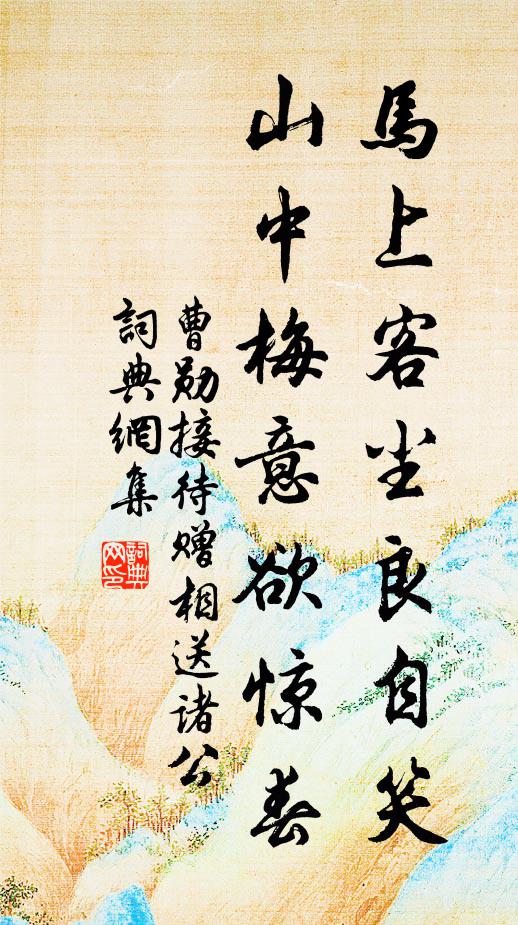 馬上客尘良自笑
山中梅意欲惊春
曹勋接待赠相送诸公
詞典網集
詞典网印